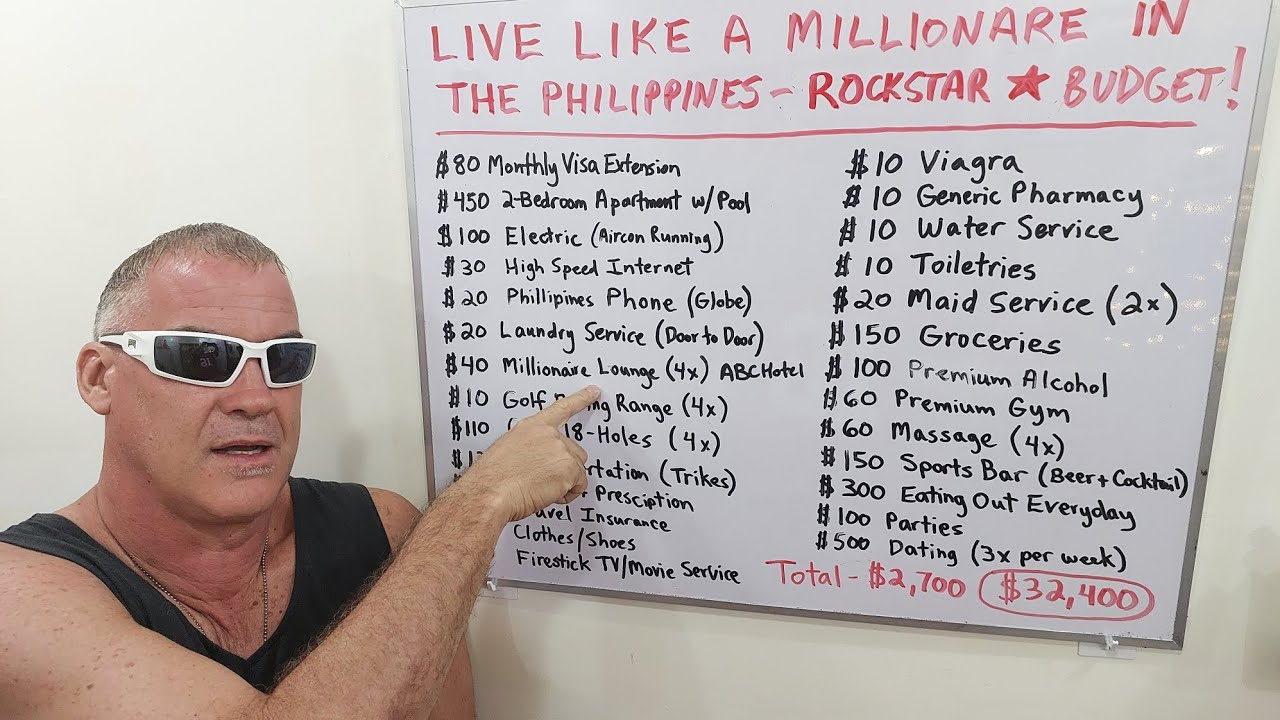 LIVE LIKE A MILLIONARE IN
THE PHILIPPINES - ROCKSTAR ★ BUDGET!
$80 Monthly Visa Extension
$450 2-Bedroom Apartment w/Pool
$100 Electric (Aircon Running)
$30 High Speed Internet
$20 Phillipines Phone (Globe)
$20 Laundry Service (Door to Door)
$40 Millionaire Lounge (4x) ABC Hotel
$10 Golf Range (4x)
$110 18-Holes (4x)
(Trikes)
Presciption
Insurance
Clothes/Shoes
Firestick TV/Movie Service
$10 Viagra
$10 Generic Pharmacy
$10 Water Service
$10 Toiletries
$20 Maid Service (2x)
$150 Groceries
$100 Premium Alcohol
$60 Premium Gym
$60 Massage (4x)
$150 Sports Bar (Beer + Cocktail)
$300 Eating Out Everyday
$100 Parties
$500 Dating (3x per week)
Total - $2,700 $32,400